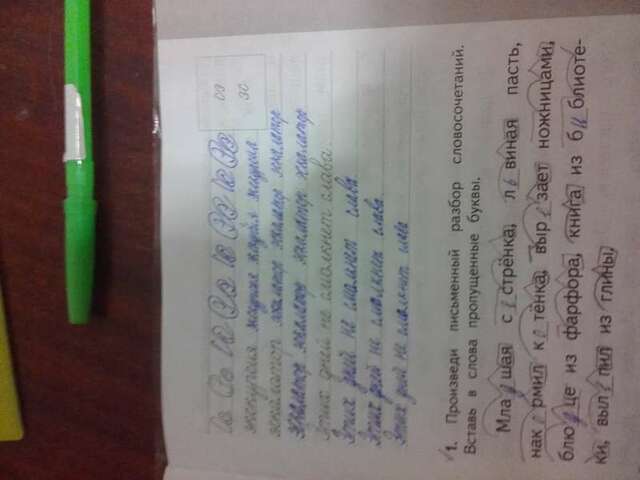 оэ
эо
экскурсия экскурсия экскурсия экскурсия
эскалатор эскалатор эскалатор эскалатор
эскалатор эскалатор эскалатор эскалатор
Этих дней не смолкнет слава.
Этих дней не смолкнет слава.
Этих дней не смолкнет слава.
Этих дней не смолкнет слава
1. Произведи письменный разбор словосочетаний.
Вставь в слова пропущенные буквы.
Младшая сестрёнка, львиная пасть,
накормил котёнка, вырезает ножницами,
блюдце из фарфора, книга из библиоте-
ки, вылепил из глины,